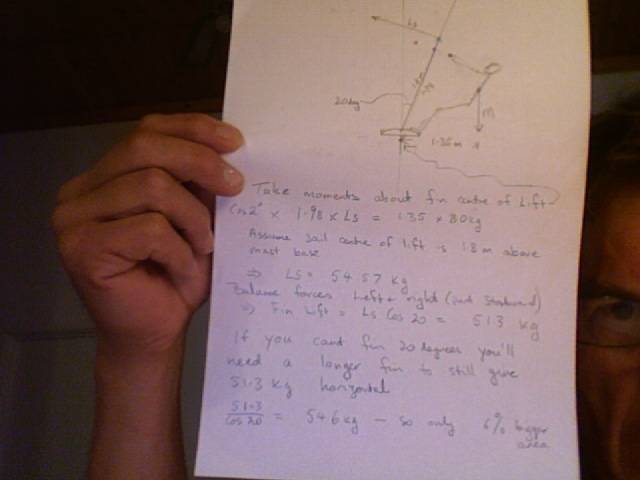 Ls
20 deg
M
1.35 m
Take moments about fin centre of Lift
Cos 2° × 1.98 × Ls = 1.35 × 80kg
Assume sail centre of lift is 1.8 m above
mast base
⇒ Ls = 54.57 kg
Balance forces left + right (port starboard)
⇒ Fin Lift = Ls Cos 20 = 51.3 kg
If you cant fin 20 degrees you'll
need a longer fin to still give
51.3 kg horizontal
51.3
Cos 20 = 54.6 kg — so only 6% bigger
area